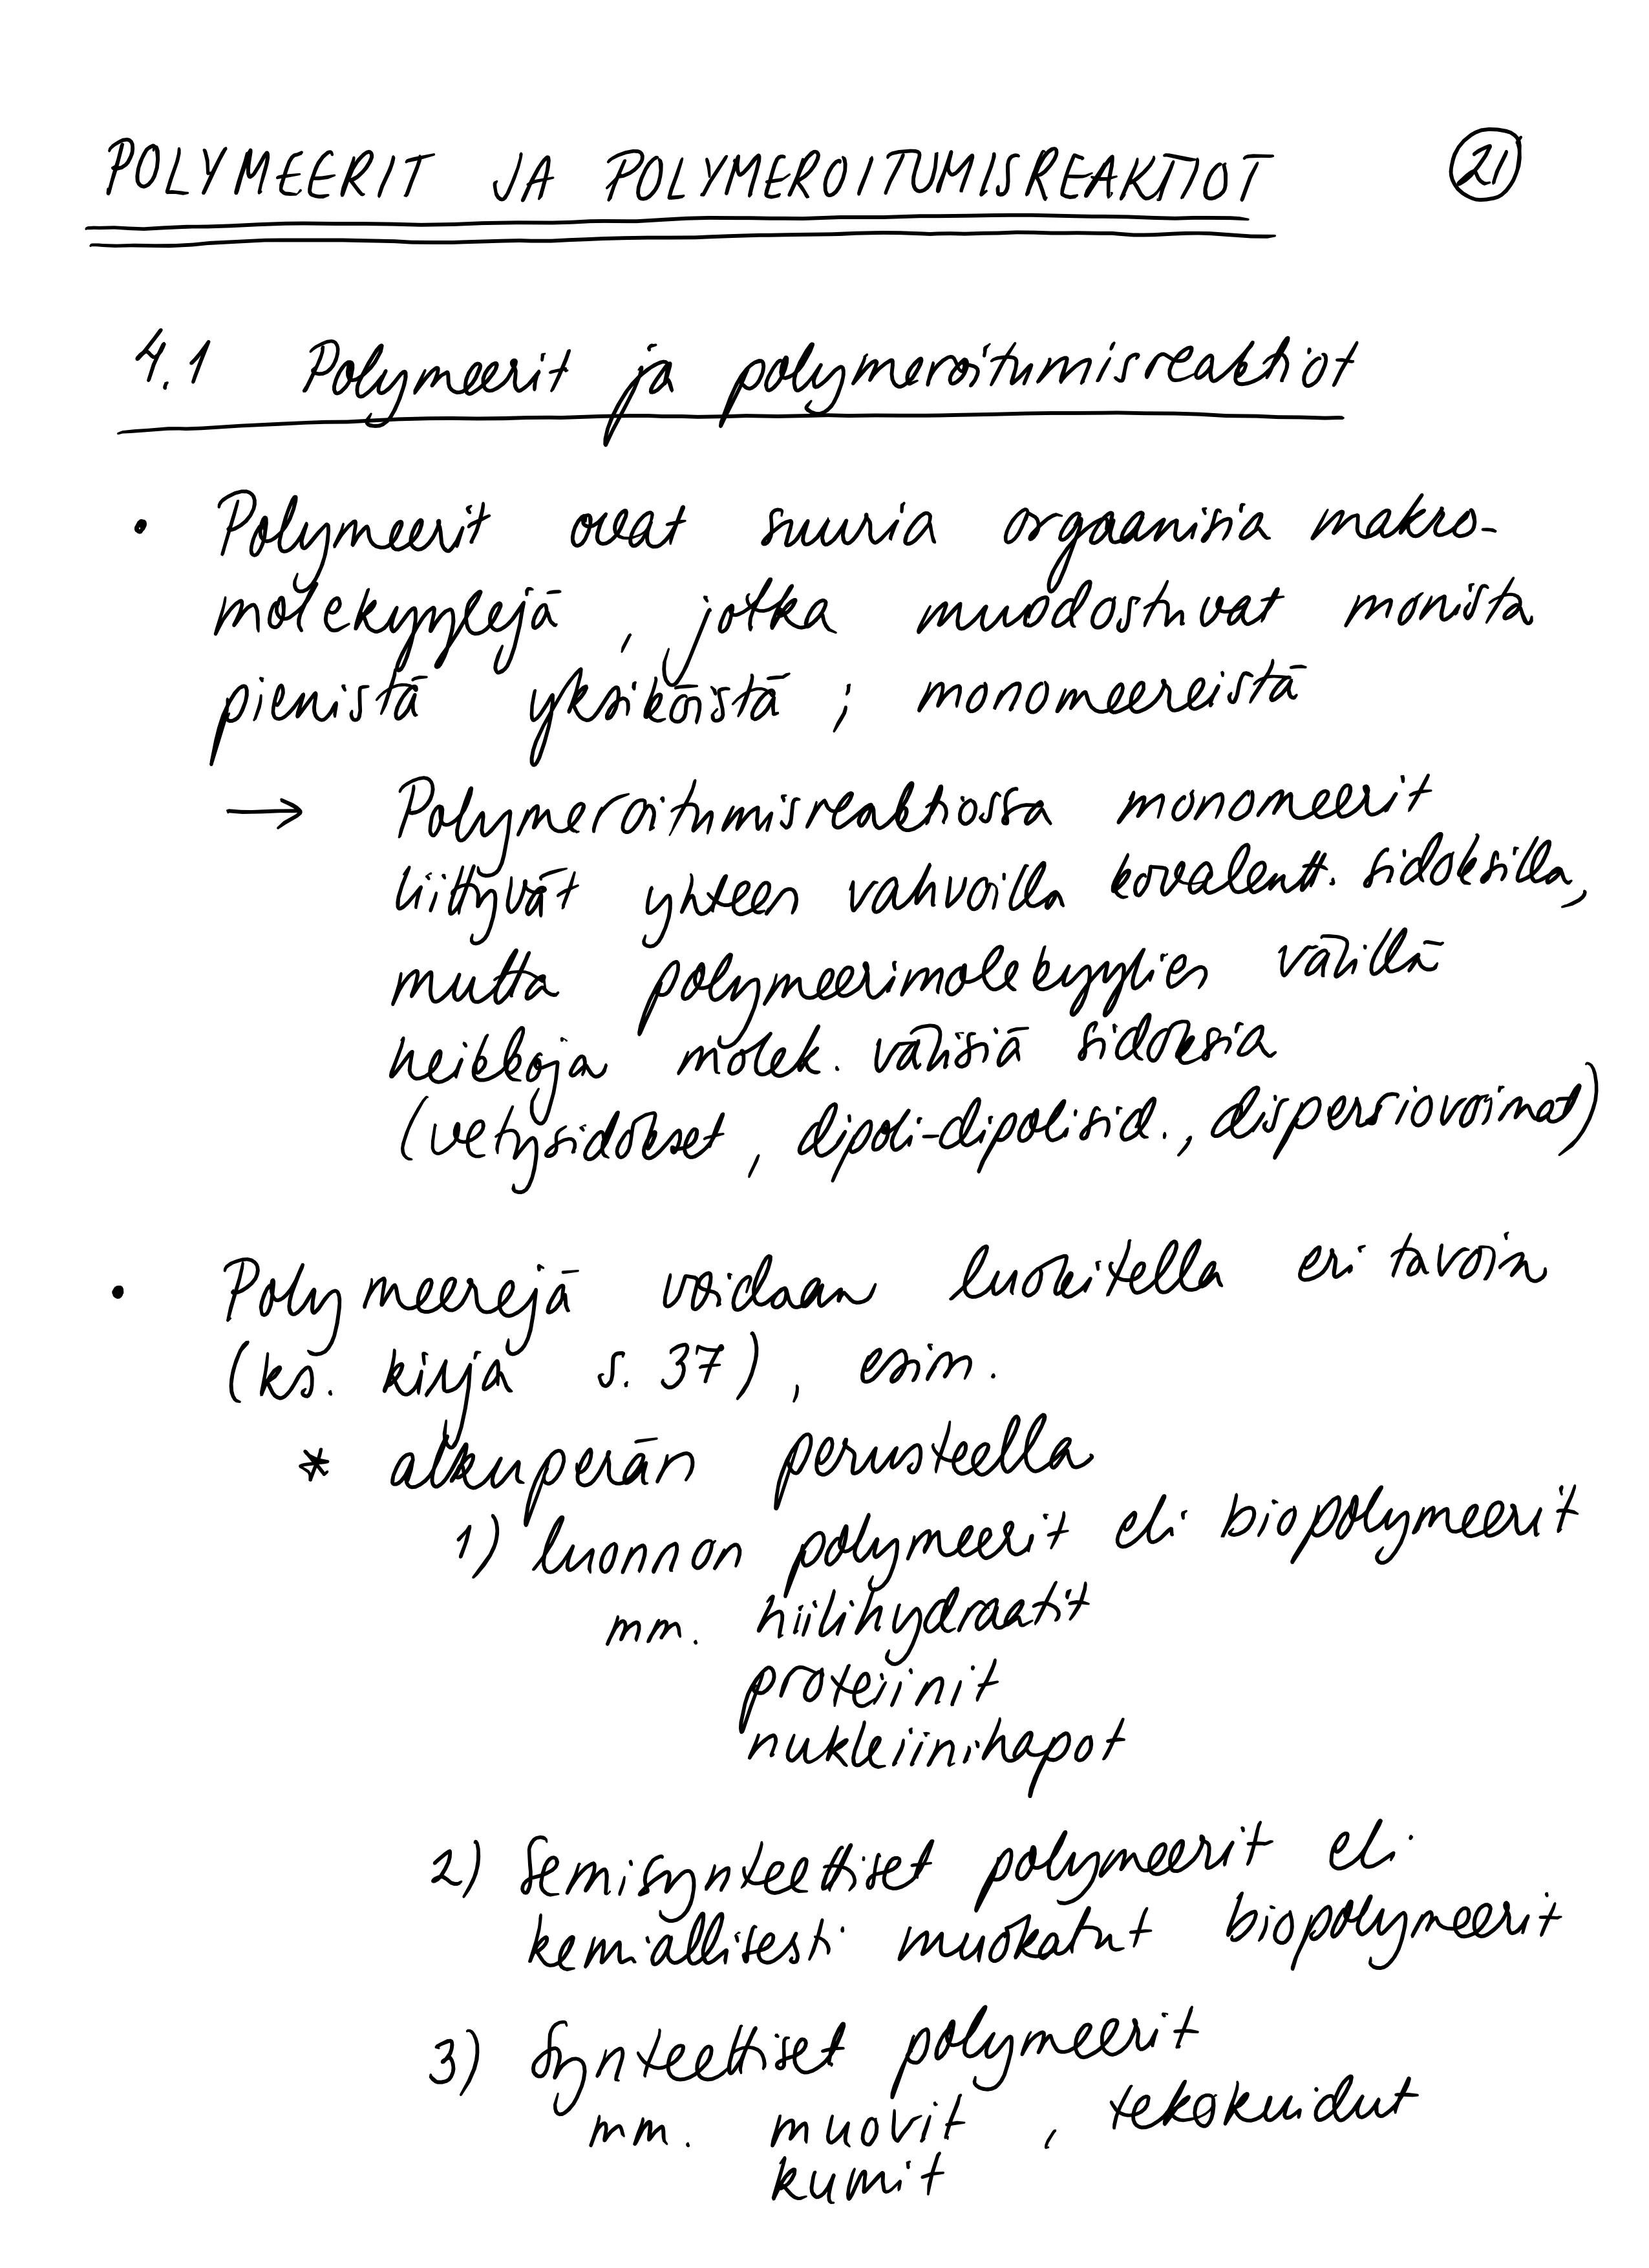 POLYMEERIT JA POLYMEROITUMISREAKTIOT 21
4.1 Polymeerit ja polymeroitumisreaktiot
• Polymeerit ovat suuria orgaanisia makro-
molekyylejä, jotka muodostuvat monista
pienistä yksiköistä; monomeereistä
→ Polymeroitumisreaktiossa monomeerit
liittyvät yhteen vahvoilla kovalentt. sidoksilla,
mutta polymeerimolekyylien välillä
heikkoja molek. välisiä sidoksia
(vetysidokset, dipoli-dipolisid., dispersiovoimat)
• Polymeerejä voidaan luokitella eri tavoin
(ks. kirja s. 37), esim.
* alkuperän perusteella
1) luonnon polymeerit eli biopolymeerit
mm. hiilihydraatit
proteiinit
nukleiinihapot
2) Semisynteettiset polymeerit eli
kemiallisesti muokatut biopolymeerit
3) Synteettiset polymeerit
mm. muovit, tekokuidut
kumit